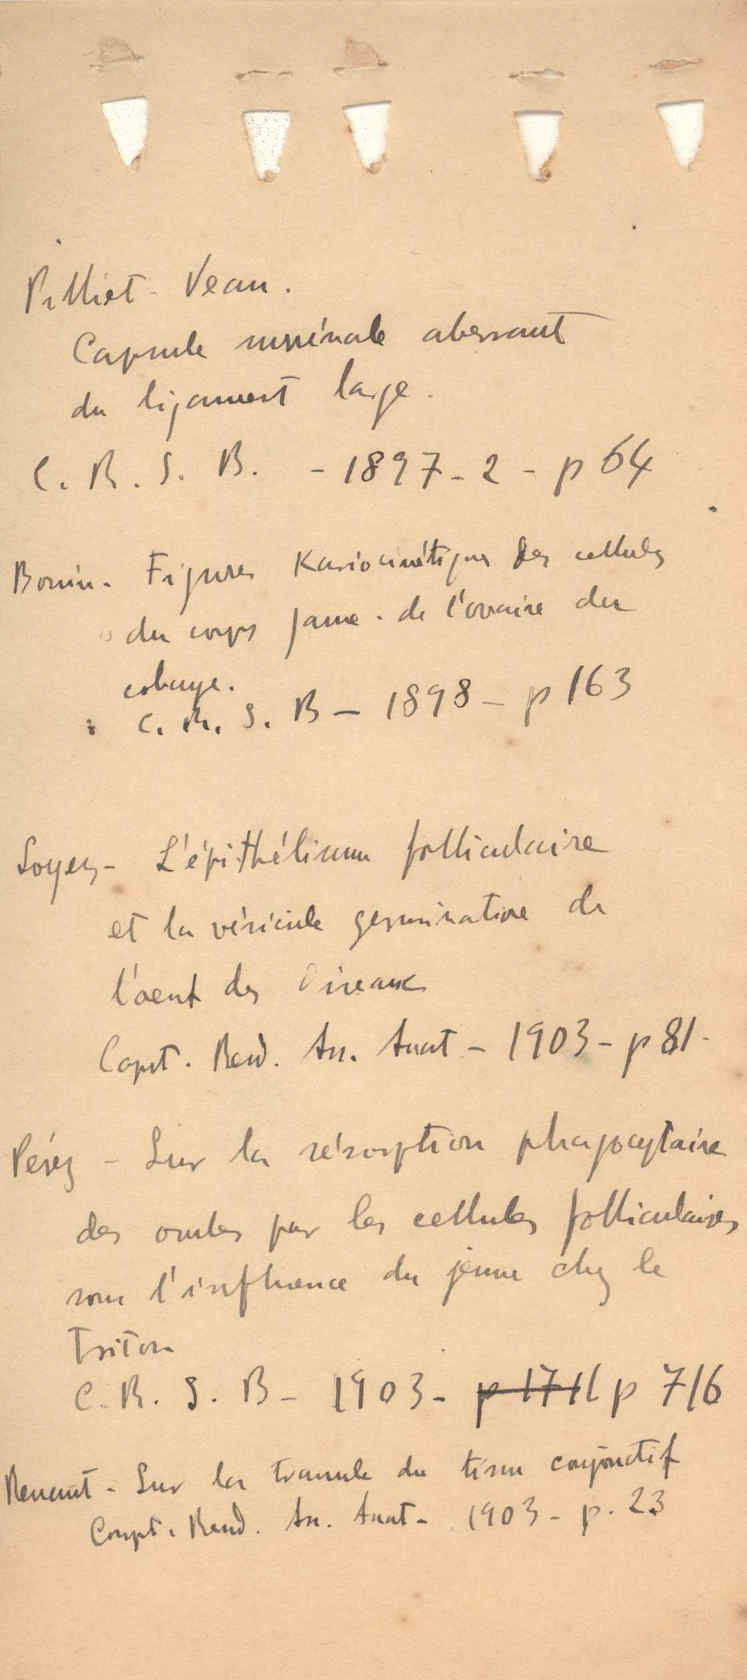 Pilliet - Veau.
Capsule surrénale aberrant
du ligament large.
C. R. S. B. - 1897 - 2 - p 64
Bouin - Figures Kariocinétiques des cellules
du corps jaune de l'ovaire du
cobaye.
C. R. S. B - 1898 - p 163
Loyez - L'épithélium folliculaire
et la vésicule germinative de
l'oeuf des Oiseaux
Compt. Rend. As. Anat - 1903 - p 81 -
Pérez - Sur la résorption phagocytaire
des ovules par les cellules folliculaires
sous l'influence du jeune chez le
Triton
C. R. S. B - 1903 - p 1711 p 716
Renaut - Sur la tramule du tissu conjonctif
Compt. Rend. As. Anat - 1903 - p. 23